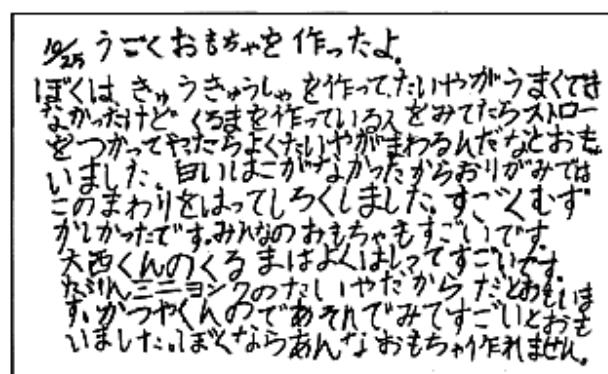 10/25 うごくおもちゃを作ったよ。
ぼくは、きゅうきゅうしゃを作って、たいやがうまくでき
なかったけど くるまを作っている人をみてたらストロー
をつかってやったらよくたいやがまわるんだなとおも
いました。白いはこがなかったからおりがみでは
このまわりをはってしろくしました。すごくむず
かしかったです。みんなのおもちゃもすごいです。
大西くんのくるまはよくはしってすごいです。
たぶんミニヨンクのたいやだからだとおもいま
す。かつやくんのであそんでみてすごいとおも
いました。ぼくならあんなおもちゃ作れません。